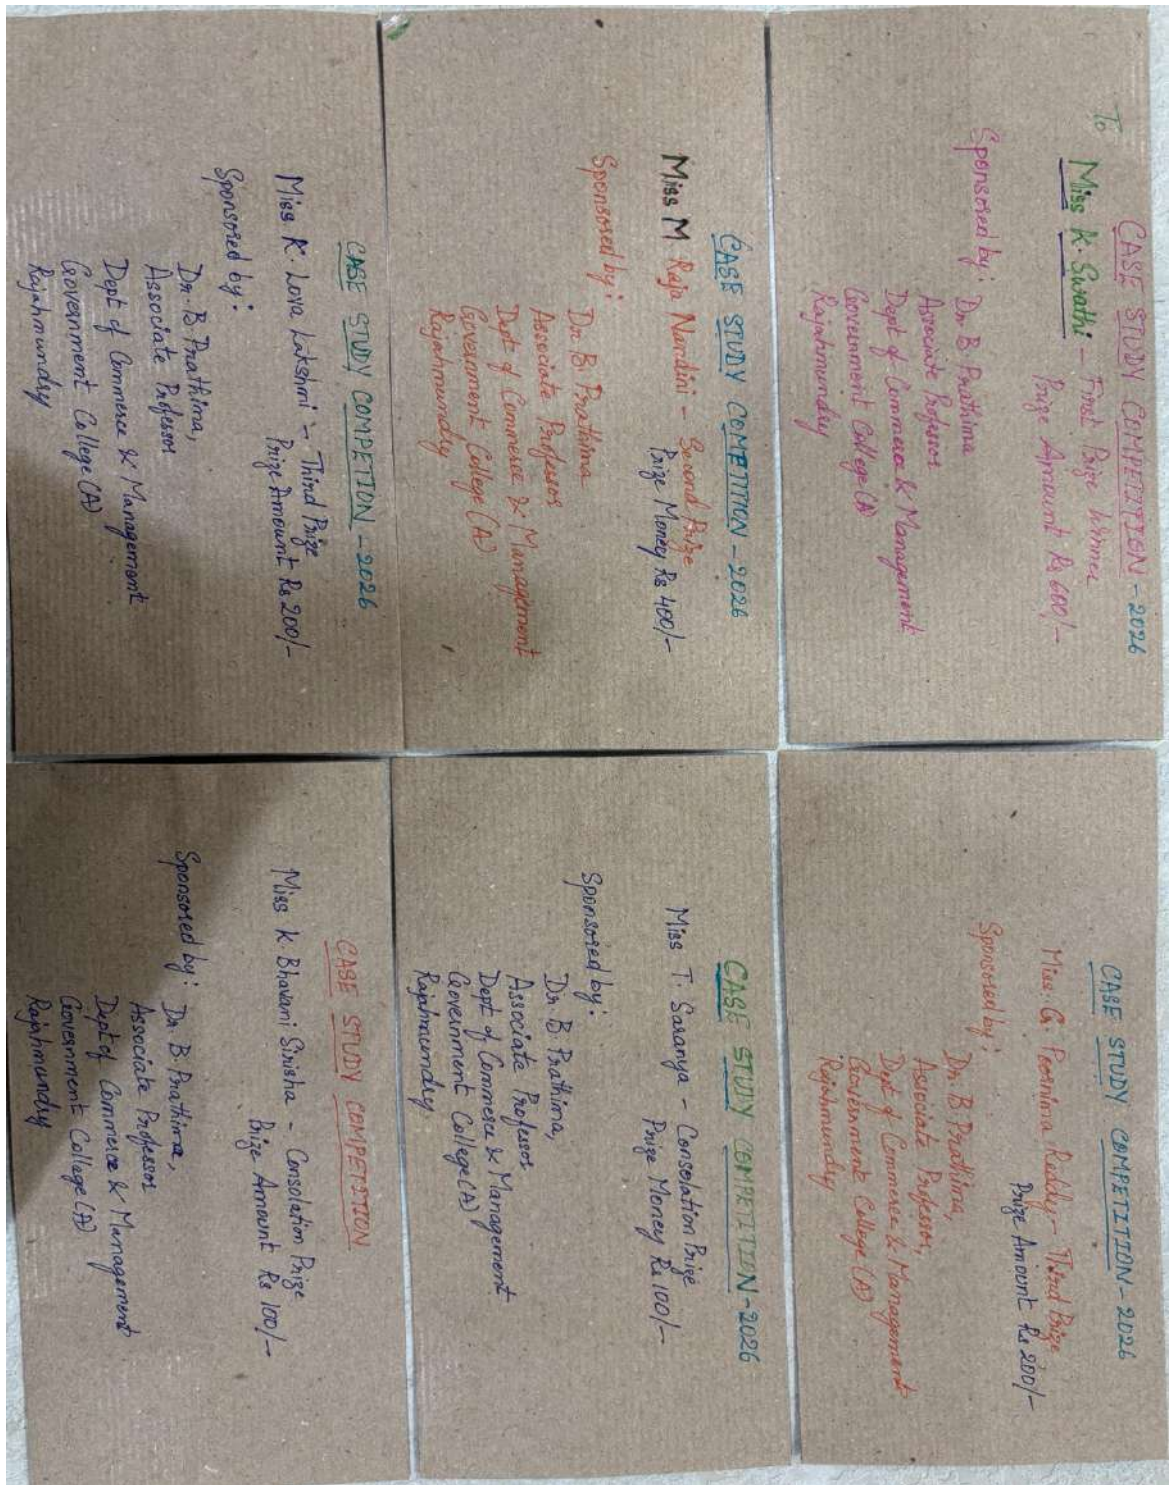 CASE STUDY COMPETITION - 2026
To
Miss K. Swathi - First Prize Winner
Prize Amount Rs 600/-
Sponsored by: Dr. B. Prathima
Associate Professor
Dept of Commerce & Management
Government College (A)
Rajahmundry
CASE STUDY COMPETITION - 2026
Miss. G. Poornima Reddy - Third Prize
Prize Amount Rs 200/-
Sponsored by:
Dr. B Prathima,
Associate Professor,
Dept of Commerce & Management
Government College (A)
Rajahmundry
CASE STUDY COMETITION - 2026
Miss M Raja Nandini - Second Prize
Prize Money Rs 400/-
Sponsored by:
Dr B. Prathima
Associate Professor
Dept of Commerce & Management
Government College (A)
Rajahmundry
CASE STUDY COMPETITION - 2026
Miss T. Saranya - Consolation Prize
Prize Money Rs 100/-
Sponsored by:
Dr. B. Prathima,
Associate Professor
Dept of Commerce & Management
Government College (A)
Rajahmundry
CASE STUDY COMPETION - 2026
Miss K. Lova Lakshmi - Third Prize
Prize Amount Rs 200/-
Sponsored by:
Dr. B Prathima,
Associate Professor
Dept of Commerce & Management
Government College (A)
Rajahmundry
CASE STUDY COMPETITION
Miss K. Bhavani Sirisha - Consolation Prize
Prize Amount Rs 100/-
Sponsored by: Dr. B. Prathima,
Associate Professor
Dept of Commerce & Management
Government College (A)
Rajahmundry